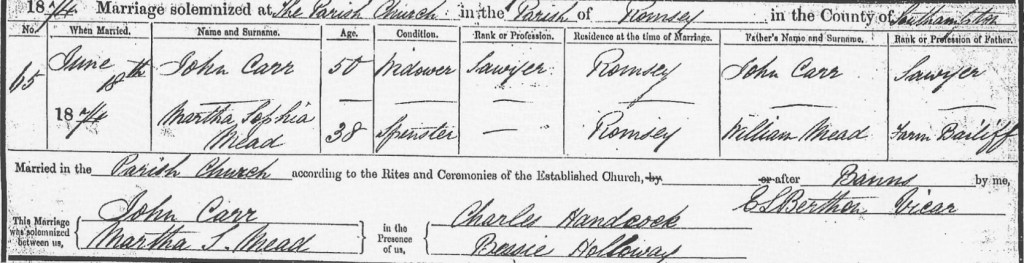 1874 Marriage solemnized at The Parish Church in the Parish of Romsey in the County of Southampton
No. When Married. Name and Surname. Age. Condition. Rank or Profession. Residence at the time of Marriage. Father's Name and Surname. Rank or Profession of Father.
65 June 18th John Carr 50 Widower Sawyer Romsey John Carr Sawyer
1874 Martha Sophia Mead 38 Spinster — Romsey William Mead Farm Bailiff
Married in the Parish Church according to the Rites and Ceremonies of the Established Church, by or after Banns by me,
E L Berthon Vicar
This Marriage was solemnized between us, John Carr Martha S. Mead in the Presence of us, Charles Handcock Bessie Holloway